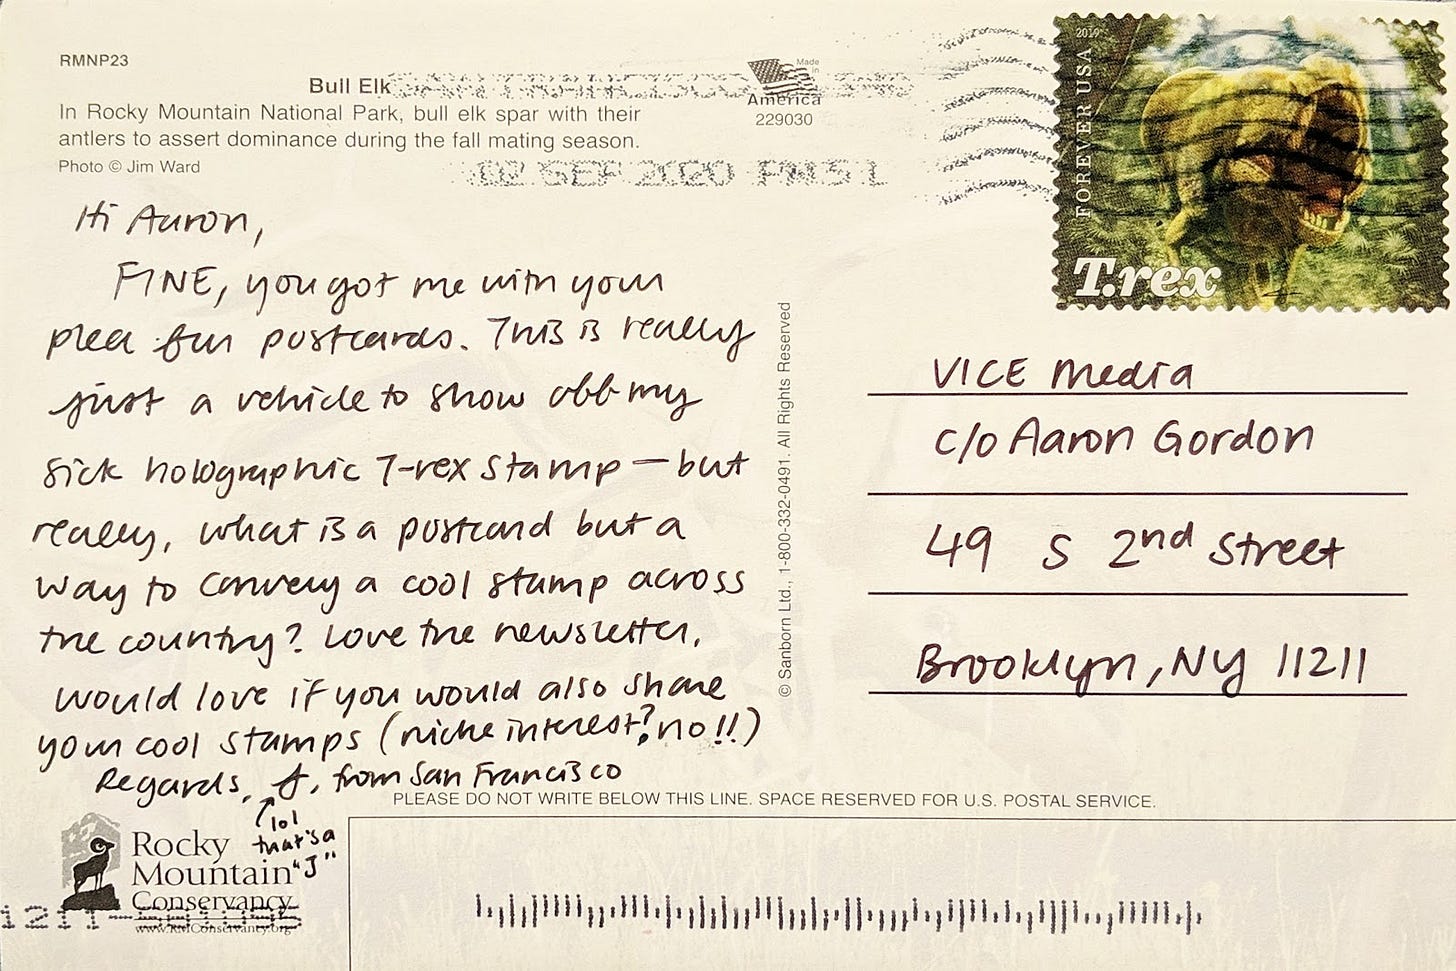 RMNP23
Bull Elk
In Rocky Mountain National Park, bull elk spar with their
antlers to assert dominance during the fall mating season.
Photo © Jim Ward
Made
in
America
229030
SAN FRANCISCO CA
02 SEP 2020 PM 5 L
2019
FOREVER USA
T.rex
Hi Aaron,
FINE, you got me with your
plea for postcards. This is really
just a vehicle to show off my
sick holographic T-rex stamp — but
really, what is a postcard but a
way to convey a cool stamp across
the country? Love the newsletter,
would love if you would also share
your cool stamps (niche interest? no!!)
Regards, J, from San Francisco
lol
that's a
"J"
© Sanborn Ltd., 1-800-332-0491. All Rights Reserved
VICE Media
c/o Aaron Gordon
49 S 2nd Street
Brooklyn, NY 11211
PLEASE DO NOT WRITE BELOW THIS LINE. SPACE RESERVED FOR U.S. POSTAL SERVICE.
Rocky
Mountain
Conservancy
www.RMConservancy.org